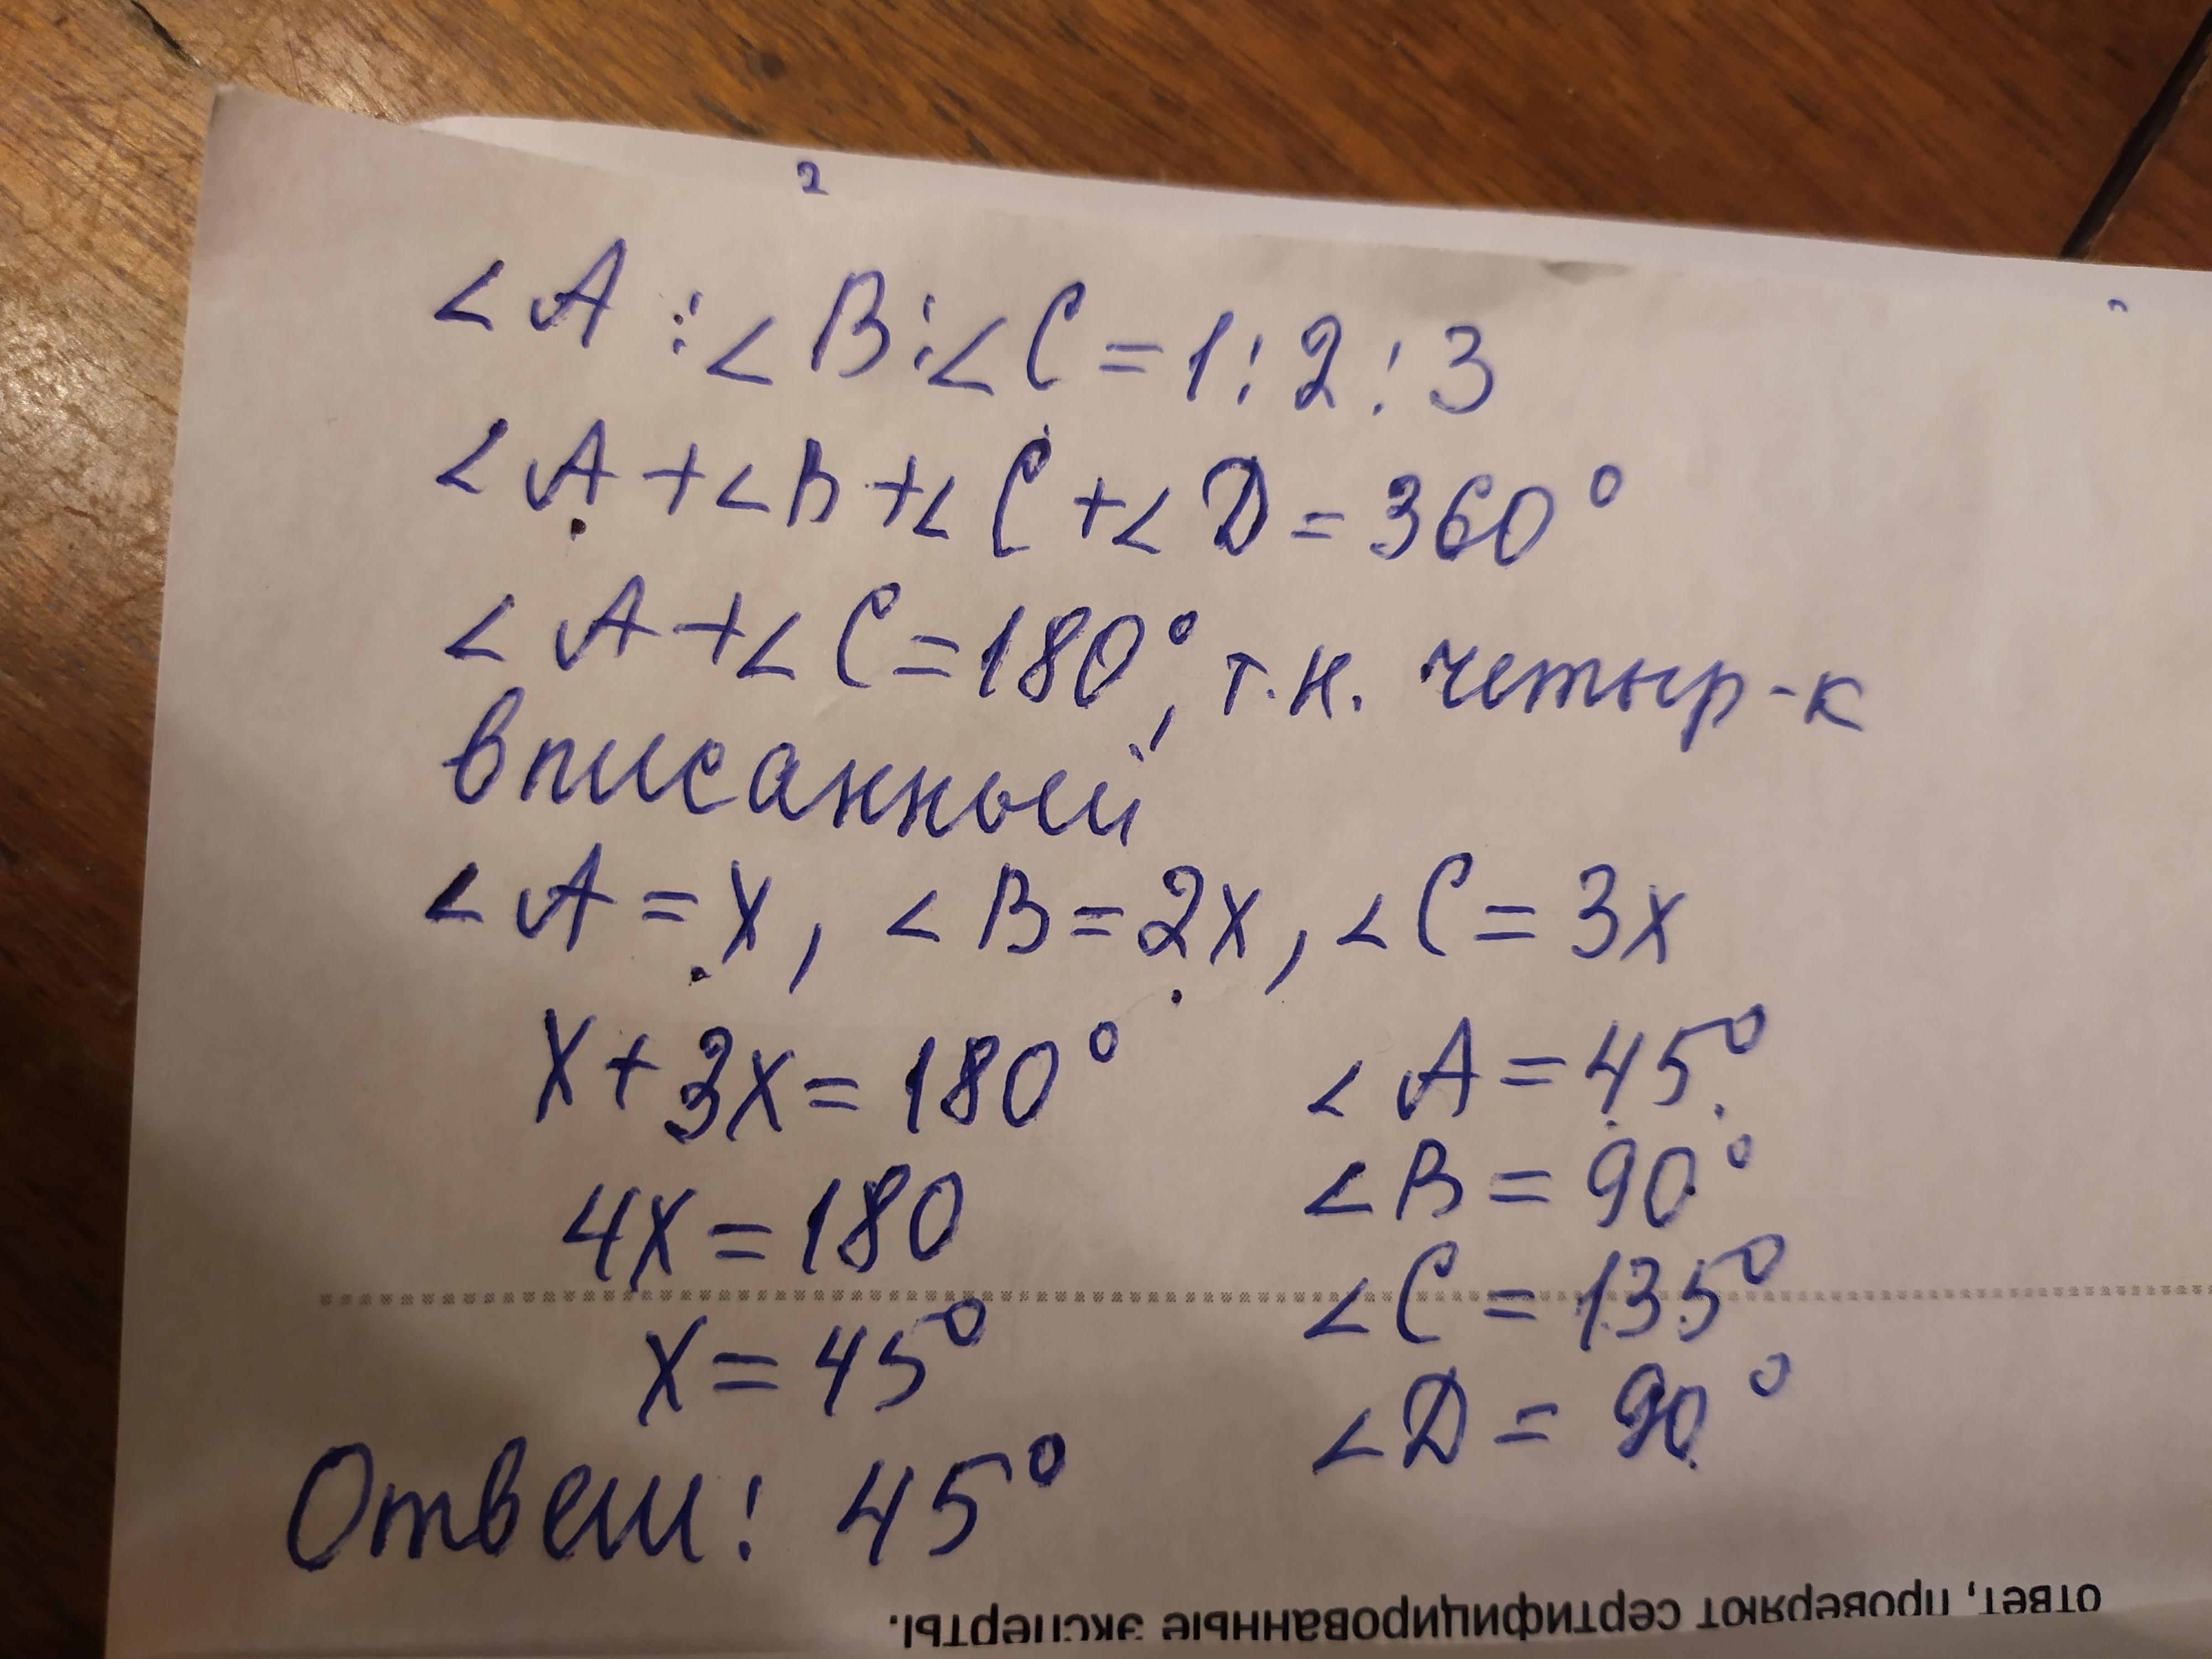 2
<A : <B : <C = 1 : 2 : 3
<A + <B + <C + <D = 360°
<A + <C = 180°, т.к. четыр-к
вписанный
<A = x, <B = 2x, <C = 3x
x + 3x = 180°
4x = 180
x = 45°
<A = 45°
<B = 90°
<C = 135°
<D = 90°
Ответ: 45°
ответ, проверяют сертифицированные эксперты.